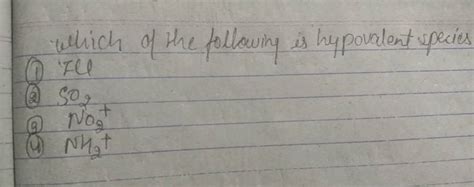 which of the following is hypovalent species
① ICl
② SO₂
③ NO₂⁺
④ NH₂⁺